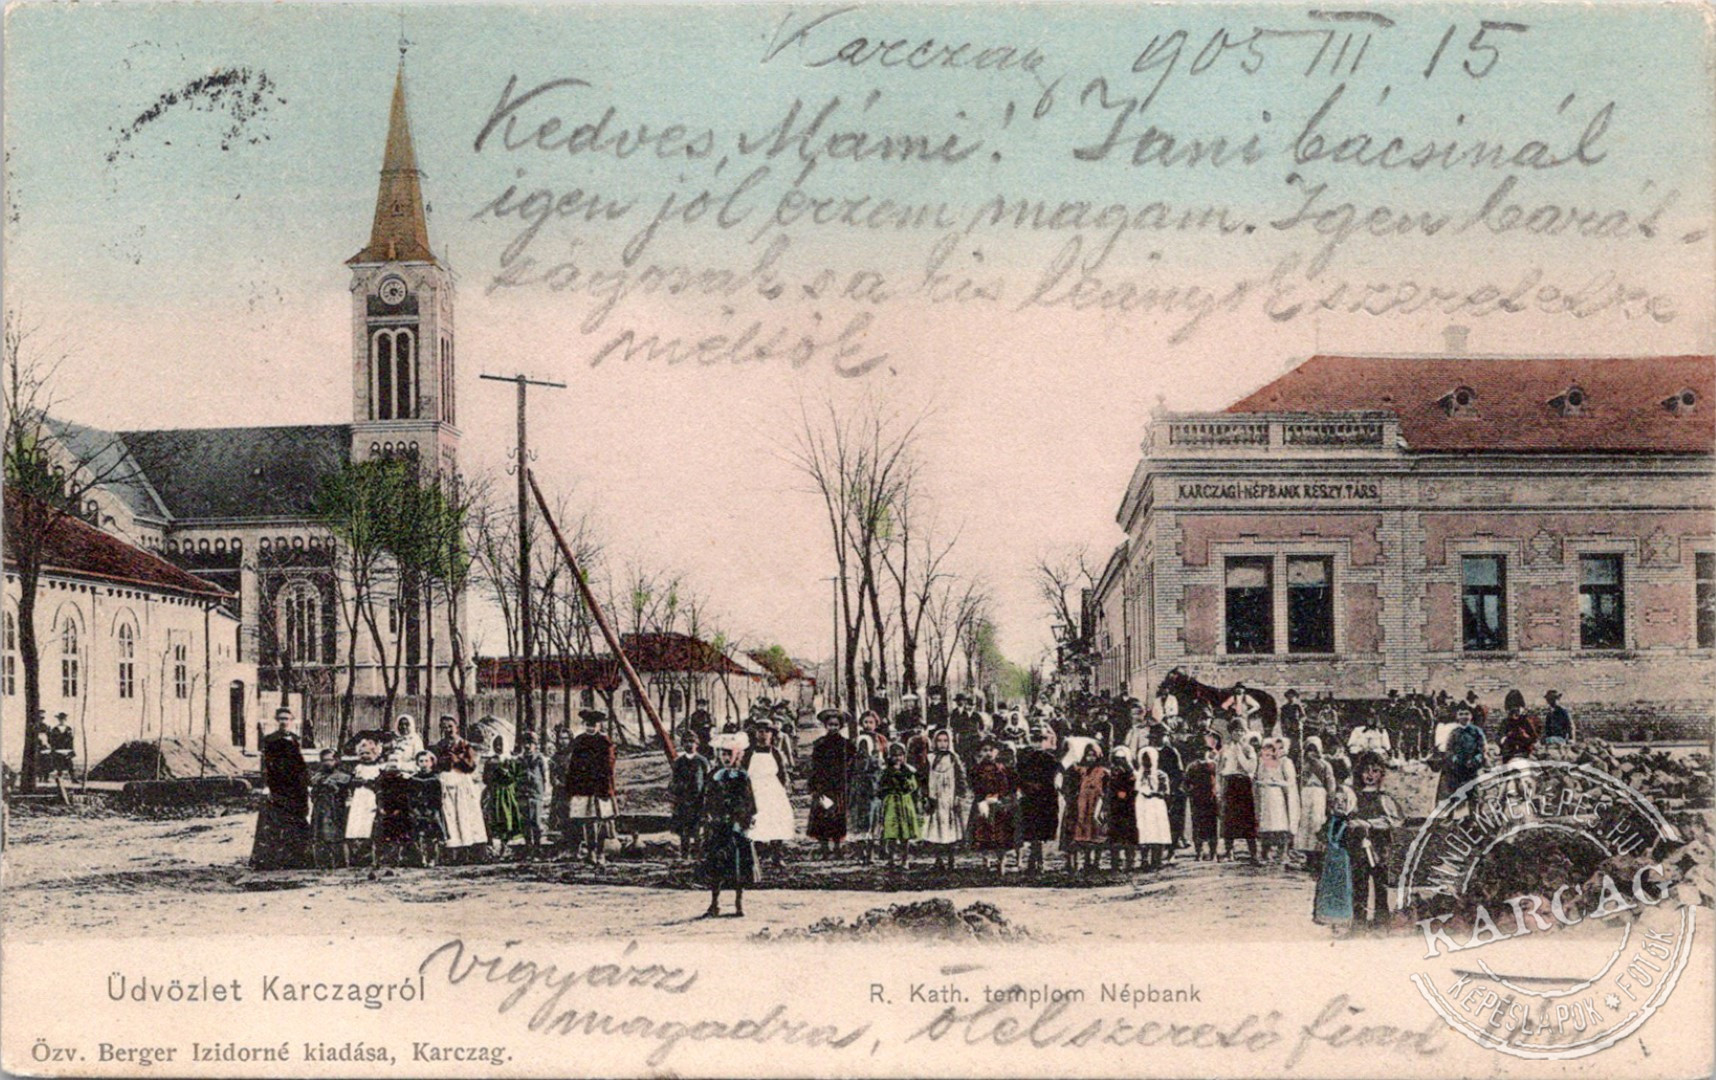 Karczag 1905 III 15
Kedves Mámi! Jani bácsinál
igen jól érzem magam. Igen barát-
ságosak s a kis leányok szeretetre
méltók.
KARCZAGI-NÉPBANK RÉSZV. TÁRS.
Üdvözlet Karczagról
vigyázz
R. Kath. templom Népbank
magadra, ölel szerető fiad
Özv. Berger Izidorné kiadása, Karczag.
WWW.MINDENREKEPES.HU
KARCAG
KÉPESLAPOK * FOTÓK